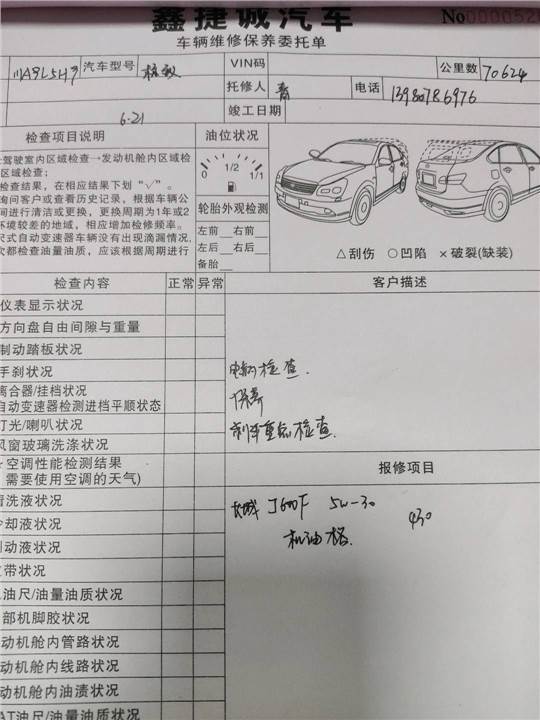 鑫捷诚汽车
No0000526
车辆维修保养委托单
川A9L5H9 汽车型号 VIN码 公里数 70624
托修人 电话 13980786976
6.21 竣工日期
检查项目说明 油位状况
驾驶室内区域检查→发动机舱内区域检
区域检查;
检查结果，在相应结果下划“√”。
询问客户或查看历史记录，根据车辆公
间进行清洁或更换，更换周期为1年或2
环境较差的地域，相应增加检修频率。
尺式自动变速器车辆没有出现滴漏情况,
次都检查油量油质，应该根据周期进行
0 1/2 1/1
轮胎外观检测
左前 右前
左后 右后
备胎
△刮伤 ○凹陷 ×破裂(缺装)
检查内容 正常 异常 客户描述
仪表显示状况
方向盘自由间隙与重量
制动踏板状况
手刹状况
离合器/挂档状况
自动变速器检测进档平顺状态
灯光/喇叭状况
风窗玻璃洗涤状况
空调性能检测结果
需要使用空调的天气)
清洗液状况
冷却液状况
制动液状况
皮带状况
油尺/油量油质状况
部机脚胶状况
动机舱内管路状况
动机舱内线路状况
动机舱内油渍状况
AT油尺/油量油质状况
电瓶检查.
保养
刹车重点检查.
报修项目
长城 J600F 5W-30 430
机油格.